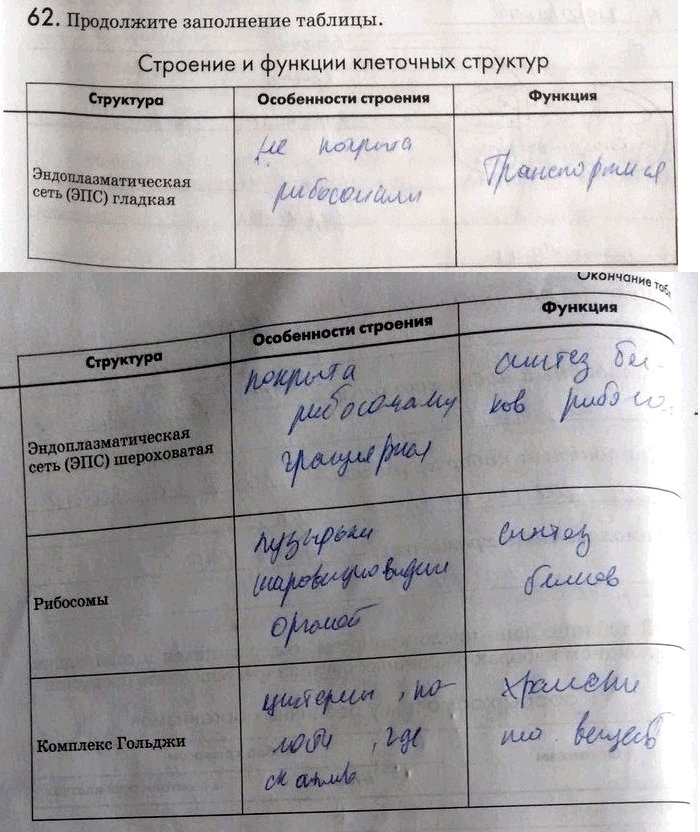 62. Продолжите заполнение таблицы.
Строение и функции клеточных структур
Структура
Особенности строения
Функция
Эндоплазматическая
сеть (ЭПС) гладкая
не покрыта
рибосомами
Транспортная
Окончание таб
Структура
Особенности строения
Функция
Эндоплазматическая
сеть (ЭПС) шероховатая
покрыта
рибосомами
гранулярная
синтез бел-
ков
Рибосомы
пузырьки
синтез
белков
Комплекс Гольджи
цистерны, по-
лости, где
хранени
веществ